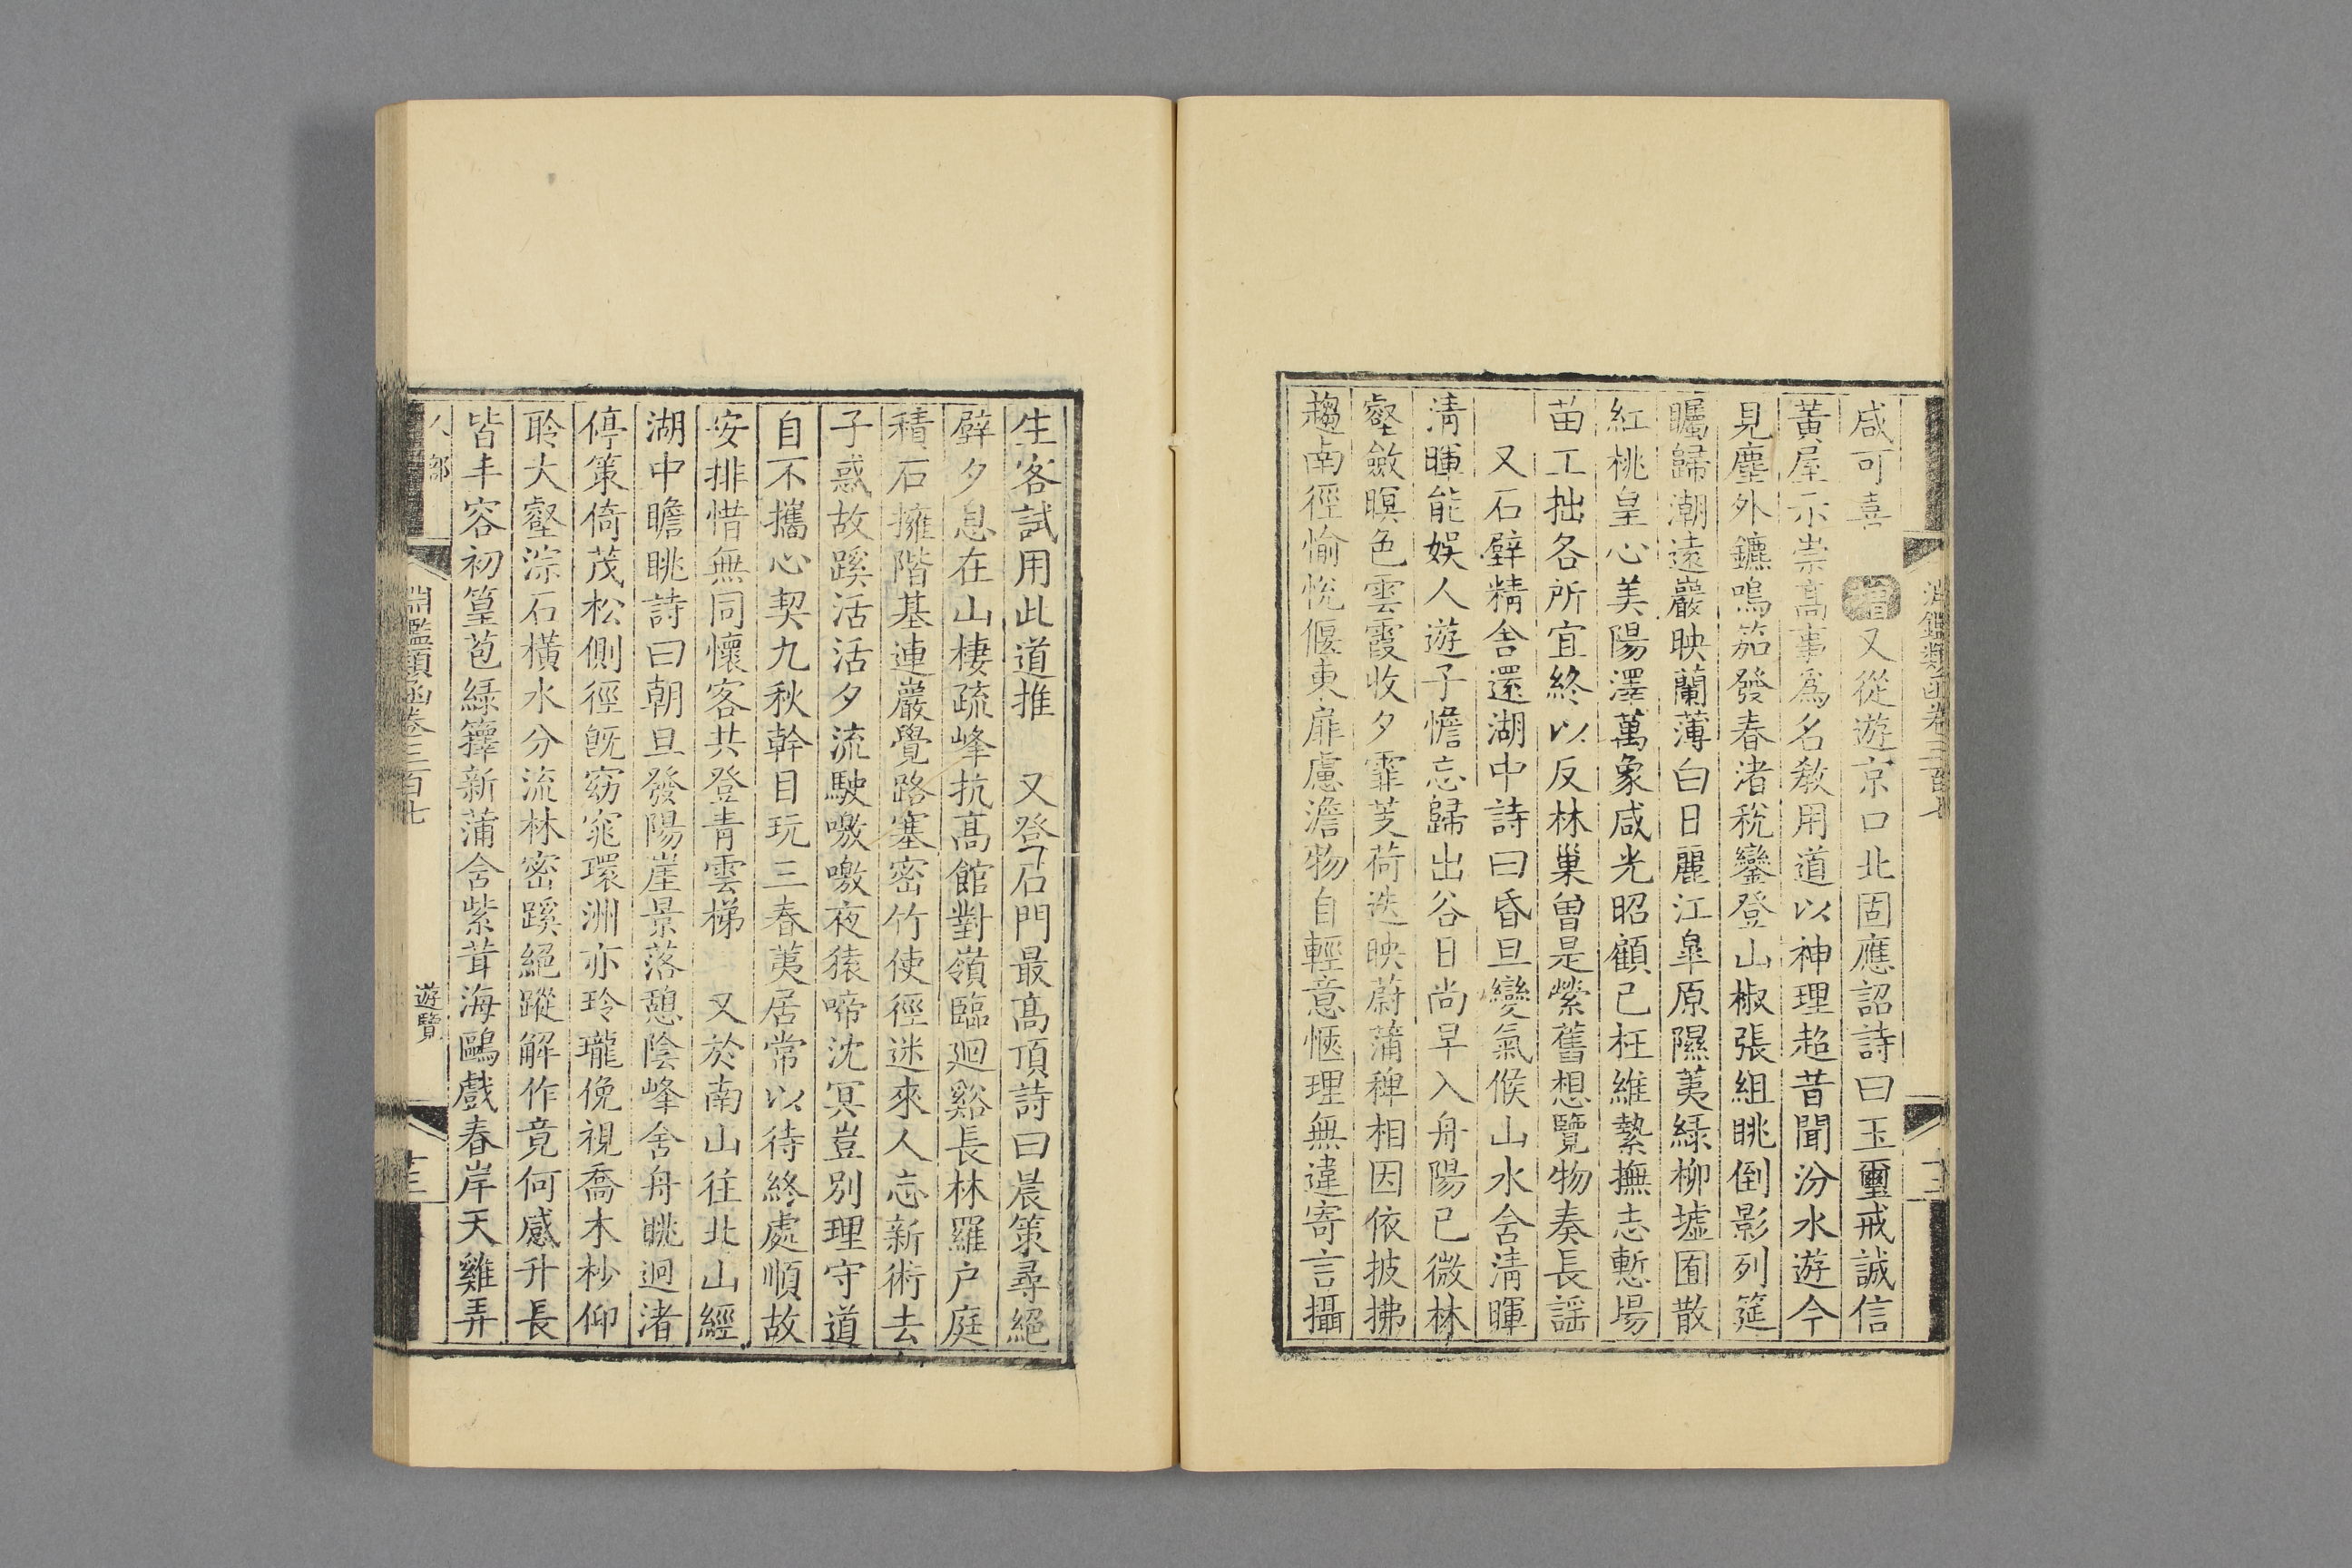 淵鑑類函卷三百七
咸可喜 增又從遊京口北固應詔詩曰玉璽戒誠信
黃屋示崇高事為名教用道以神理超昔聞汾水遊今
見塵外鑣鳴笳發春渚稅鑾登山椒張組眺倒影列筵
矚歸潮遠巖映蘭薄白日麗江皐原隰荑綠柳墟囿散
紅桃皇心美陽澤萬象咸光昭顧已枉維縶撫志慙場
苗工拙各所宜終以反林巢曾是縈舊想覽物奏長謡
又石壁精舍還湖中詩曰昏旦變氣候山水含清暉
清暉能娱人遊子憺忘歸出谷日尚早入舟陽已微林
壑斂暝色雲霞收夕霏芰荷迭映蔚蒲稗相因依披拂
趨南徑愉悅偃東扉慮澹物自輕意愜理無違寄言攝
生客試用此道推 又登石門最高頂詩曰晨策尋絕
壁夕息在山棲疏峰抗高館對嶺臨廻谿長林羅户庭
積石擁階基連巖覺路塞密竹使徑迷來人忘新術去
子惑故蹊活活夕流駛噭噭夜猿啼沈冥豈别理守道
自不攜心契九秋幹目玩三春荑居常以待終處順故
安排惜無同懷客共登青雲梯 又於南山往北山經
湖中瞻眺詩曰朝旦發陽崖景落憩陰峰舍舟眺迥渚
停策倚茂松側徑旣窈窕環洲亦玲瓏俛視喬木杪仰
聆大壑淙石橫水分流林密蹊絕蹤解作竟何感升長
皆丰容初篁苞綠籜新蒲含紫茸海鷗戲春岸天雞弄
人部 淵鑑類函卷三百七 遊覽 十三